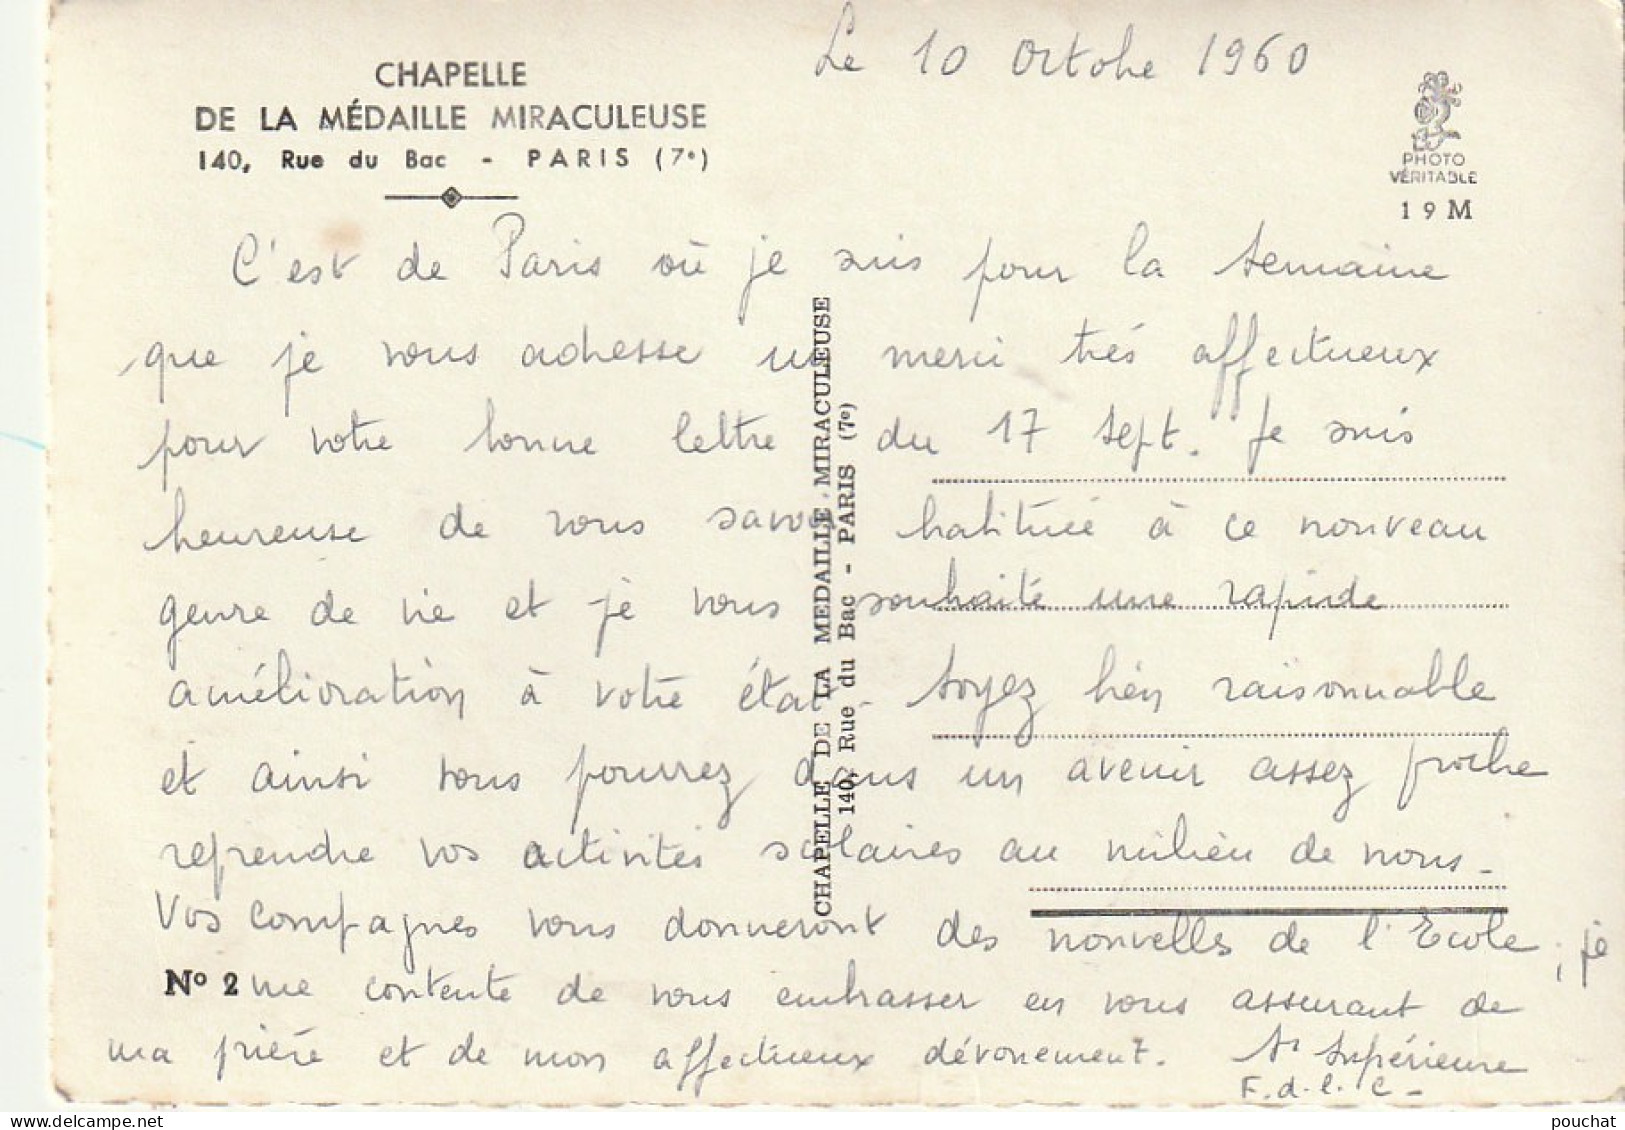 Le 10 Octobre 1960
CHAPELLE
DE LA MÉDAILLE MIRACULEUSE
140, Rue du Bac - PARIS (7e)
PHOTO
VÉRITABLE
19M
C'est de Paris où je suis pour la semaine
que je vous adresse un merci très affectueux
pour votre bonne lettre du 17 sept. Je suis
heureuse de vous savoir habituée à ce nouveau
genre de vie et je vous souhaite une rapide
amélioration à votre état. Soyez bien raisonnable
et ainsi vous pourrez dans un avenir assez proche
reprendre vos activités scolaires au milieu de nous.
Vos compagnes vous donneront des nouvelles de l'Ecole ; je
No 2 me contente de vous embrasser en vous assurant de
ma prière et de mon affectueux dévouement. Sr Supérieure
F. d. l. C.
CHAPELLE DE LA MEDAILLE MIRACULEUSE
140, Rue du Bac - PARIS (7e)
pouchat